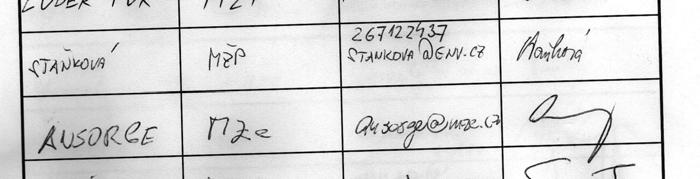 STAŇKOVÁ
MŽP
267122437
STANKOVA@ENV.CZ
Staňková
ANSORGE
MZe
ansorge@mze.cz